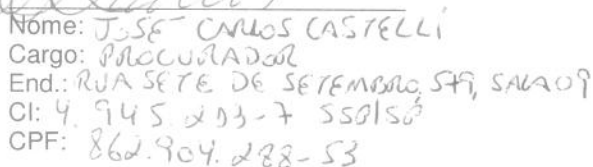 Nome: JOSE CARLOS CASTELLI
Cargo: PROCURADOR
End.: RUA SETE DE SETEMBRO, 579, SALA 09
CI: 4.945.203-7 SSP/SP
CPF: 862.904.288-53